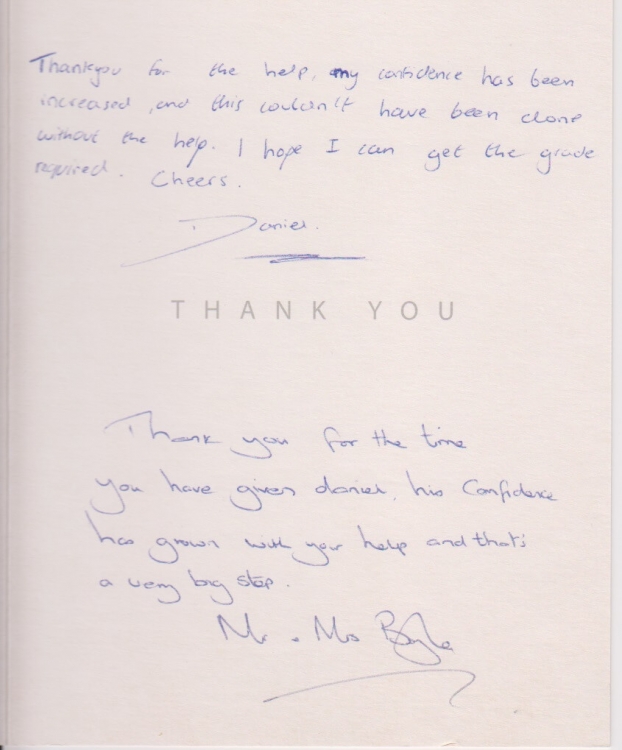 Thankyou for the help, my confidence has been
increased, and this couldn't have been done
without the help. I hope I can get the grade
required. Cheers.
Daniel.
THANK YOU
Thank you for the time
you have given daniel, his Confidence
has grown with your help and that's
a very big step.
Mr . Mrs